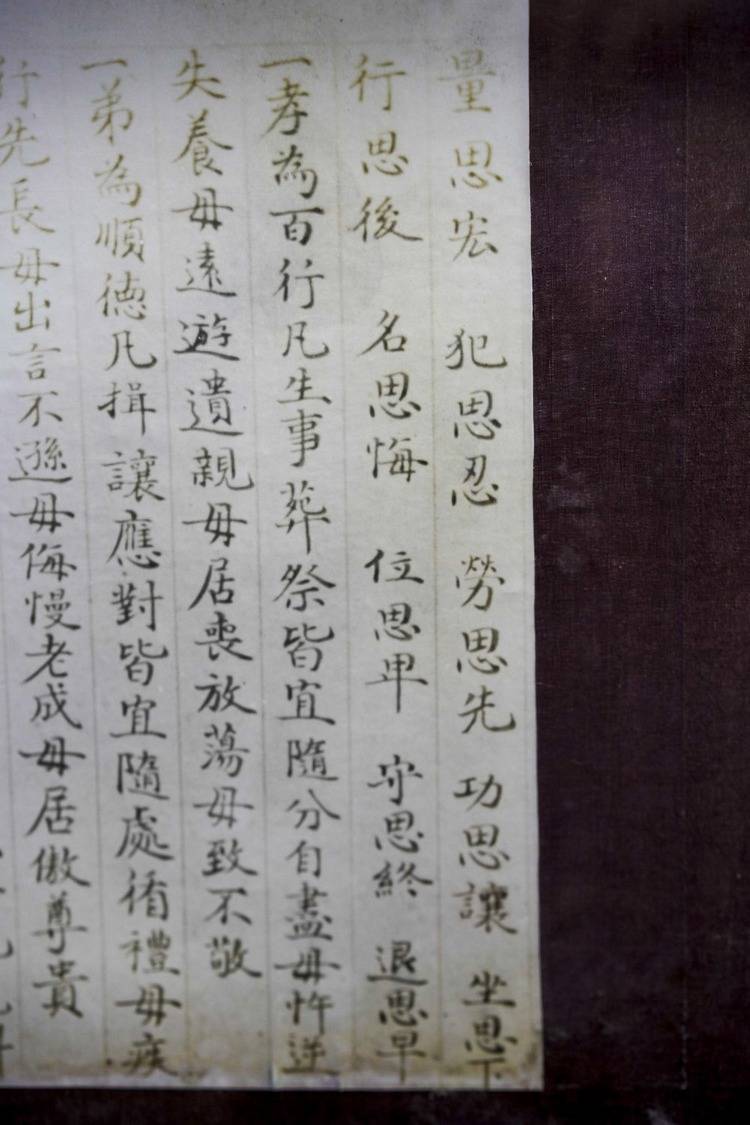 量思宏 犯思忍 勞思先 功思讓 坐思下
行思後 名思悔 位思卑 守思終 退思早
一孝為百行凡生事葬祭皆宜隨分自盡毋忤逆
失養毋遠遊遺親毋居喪放蕩毋致不敬
一弟為順德凡揖讓應對皆宜隨處循禮毋疾
行先長毋出言不遜毋侮慢老成毋居傲尊貴